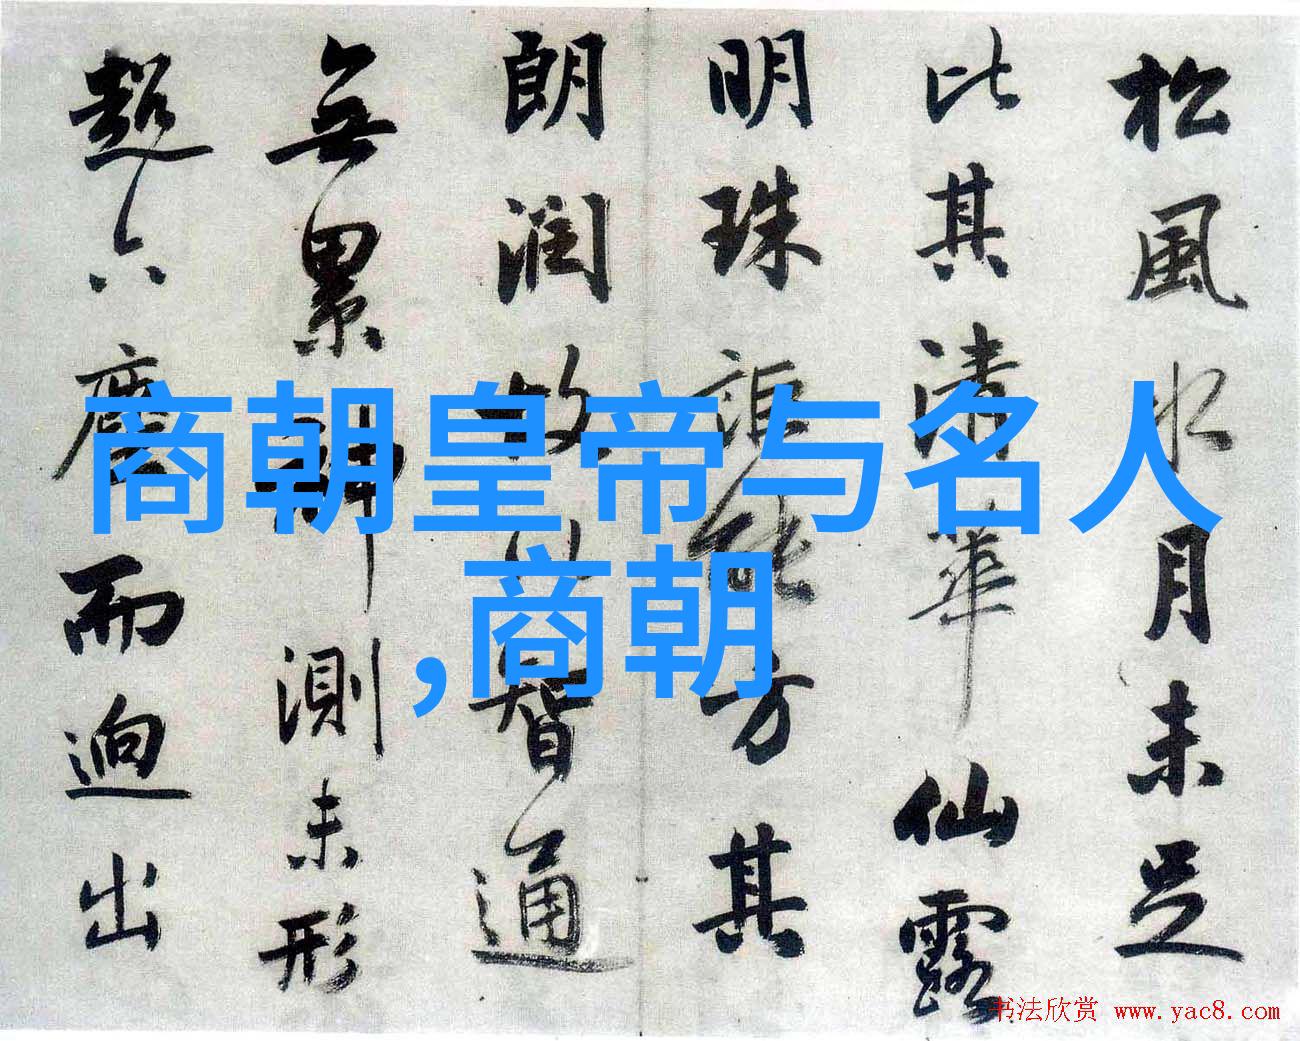 松風水月未足
比其清華仙露
明珠詎能方其
朗潤故以智通
無累神測未形
超六塵而迥出
商朝皇帝与名人
,商朝
书法欣赏 www.yac8.com